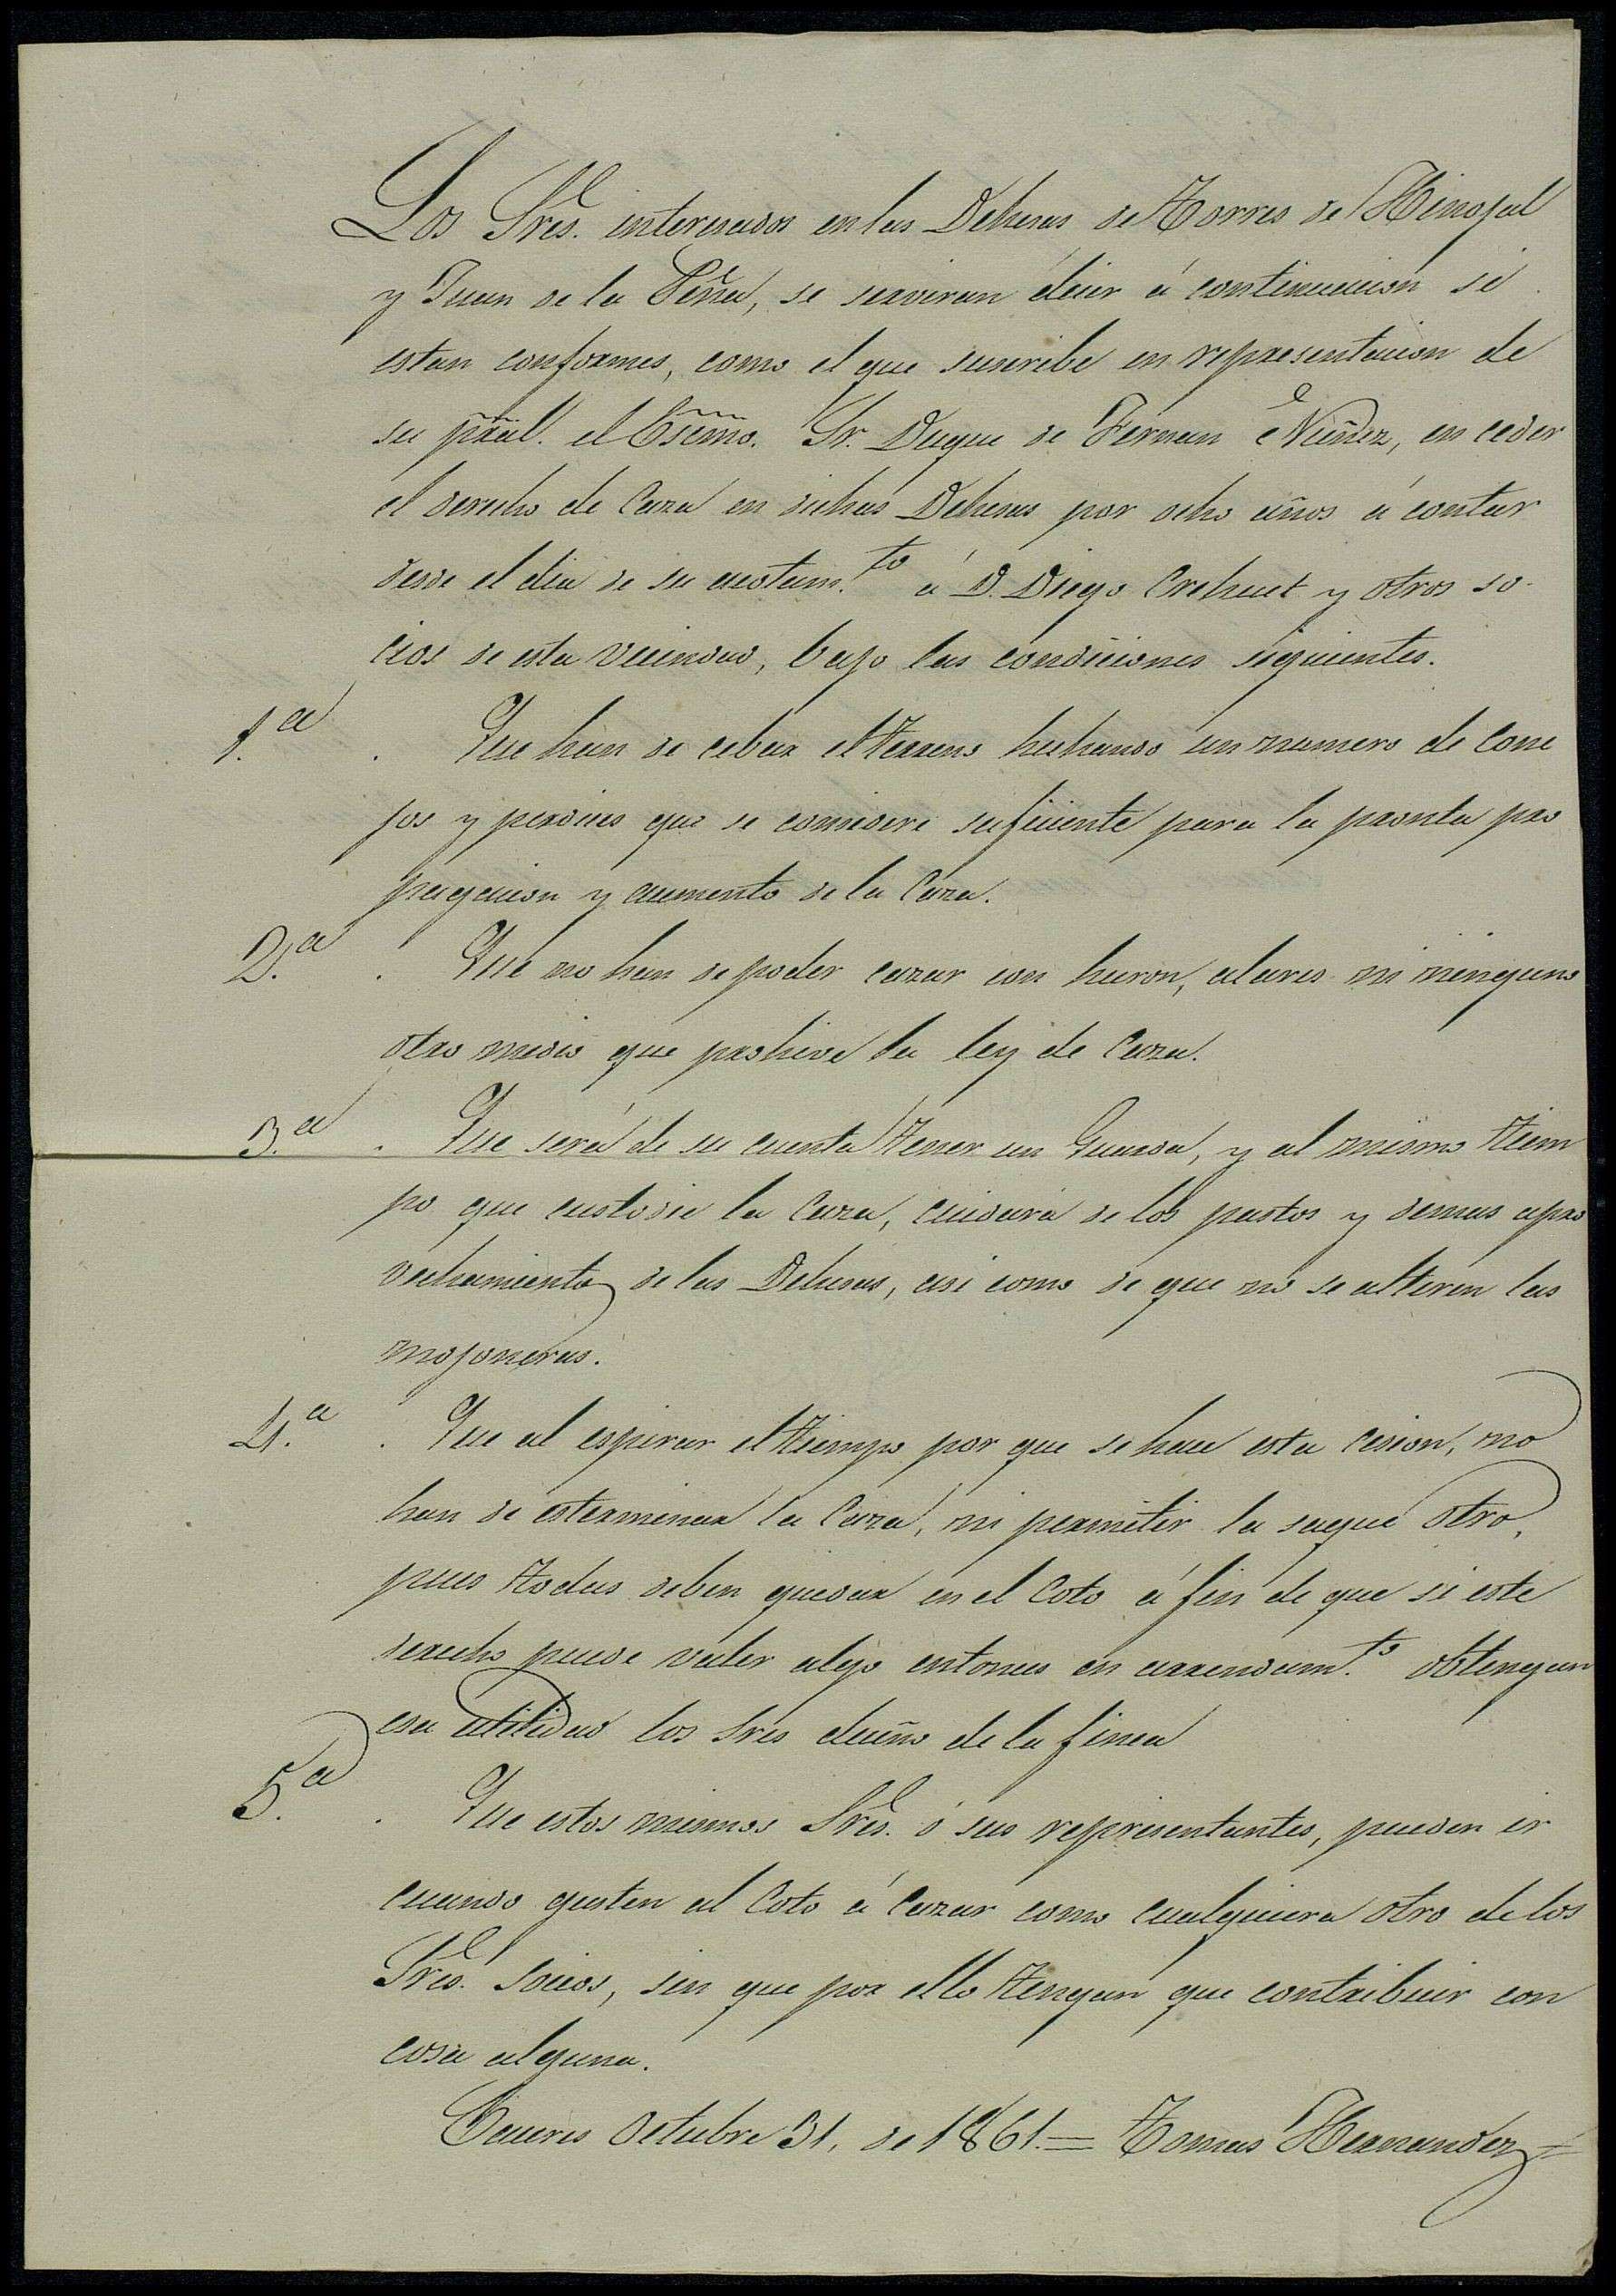 Los Sres. interesados en las Dehesas de Torres de Hinojal
y Juan de la Peña, se serviran decir á continuacion si
estan conformes, como el que suscribe en representacion de
su pral. el Esemo. Sr. Duque de Fernan Nuñez, en ceder
el derecho de Caza en dichas Dehesas por ocho años á contar
desde el dia de su acotam.to á D. Diego Crehuet y otros so-
cios de esta vecindad, bajo las condiciones siguientes.
1.a . Que han de cebar el terreno hechando un numero de Cone
jos y perdices que se considere suficiente para la pronta pro
pagacion y aumento de la Caza.
2.a . Que no han de poder cazar con huron, alares ni ninguno
otro medio que prohive la ley de Caza.
3.a . Que será de su cuenta tener un Guarda, y al mismo tiem
po que custodie la Caza, cuidará de los pastos y demas apro
vechamientos de las Dehesas, asi como de que no se alteren las
mojoneras.
4.a . Que al espirar el tiempo por que se hace esta cesion, no
han de esterminar la Caza, ni permitir la saque otro,
pues todas deben quedar en el Coto á fin de que si este
derecho puede valer algo entonces en arrendam.to obtengan
esa utilidad los Sres dueño de la finca
5.a . Que estos mismos Sres. ó sus representantes, pueden ir
cuando gusten al Coto á Cazar como cualquiera otro de los
Sres. Socios, sin que por ello tengan que contribuir con
cosa alguna.
Caceres Octubre 31, de 1861.= Tomas Hernandez=